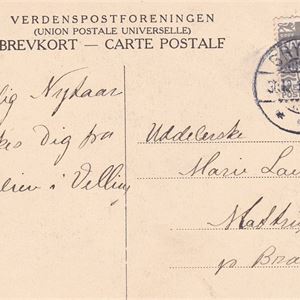 VERDENSPOSTFORENINGEN
(UNION POSTALE UNIVERSELLE)
BREVKORT — CARTE POSTALE
lig Nytaar
Dig fra
lien i Velling
Uddelerske
Marie Lau
Mastru
pr Bra